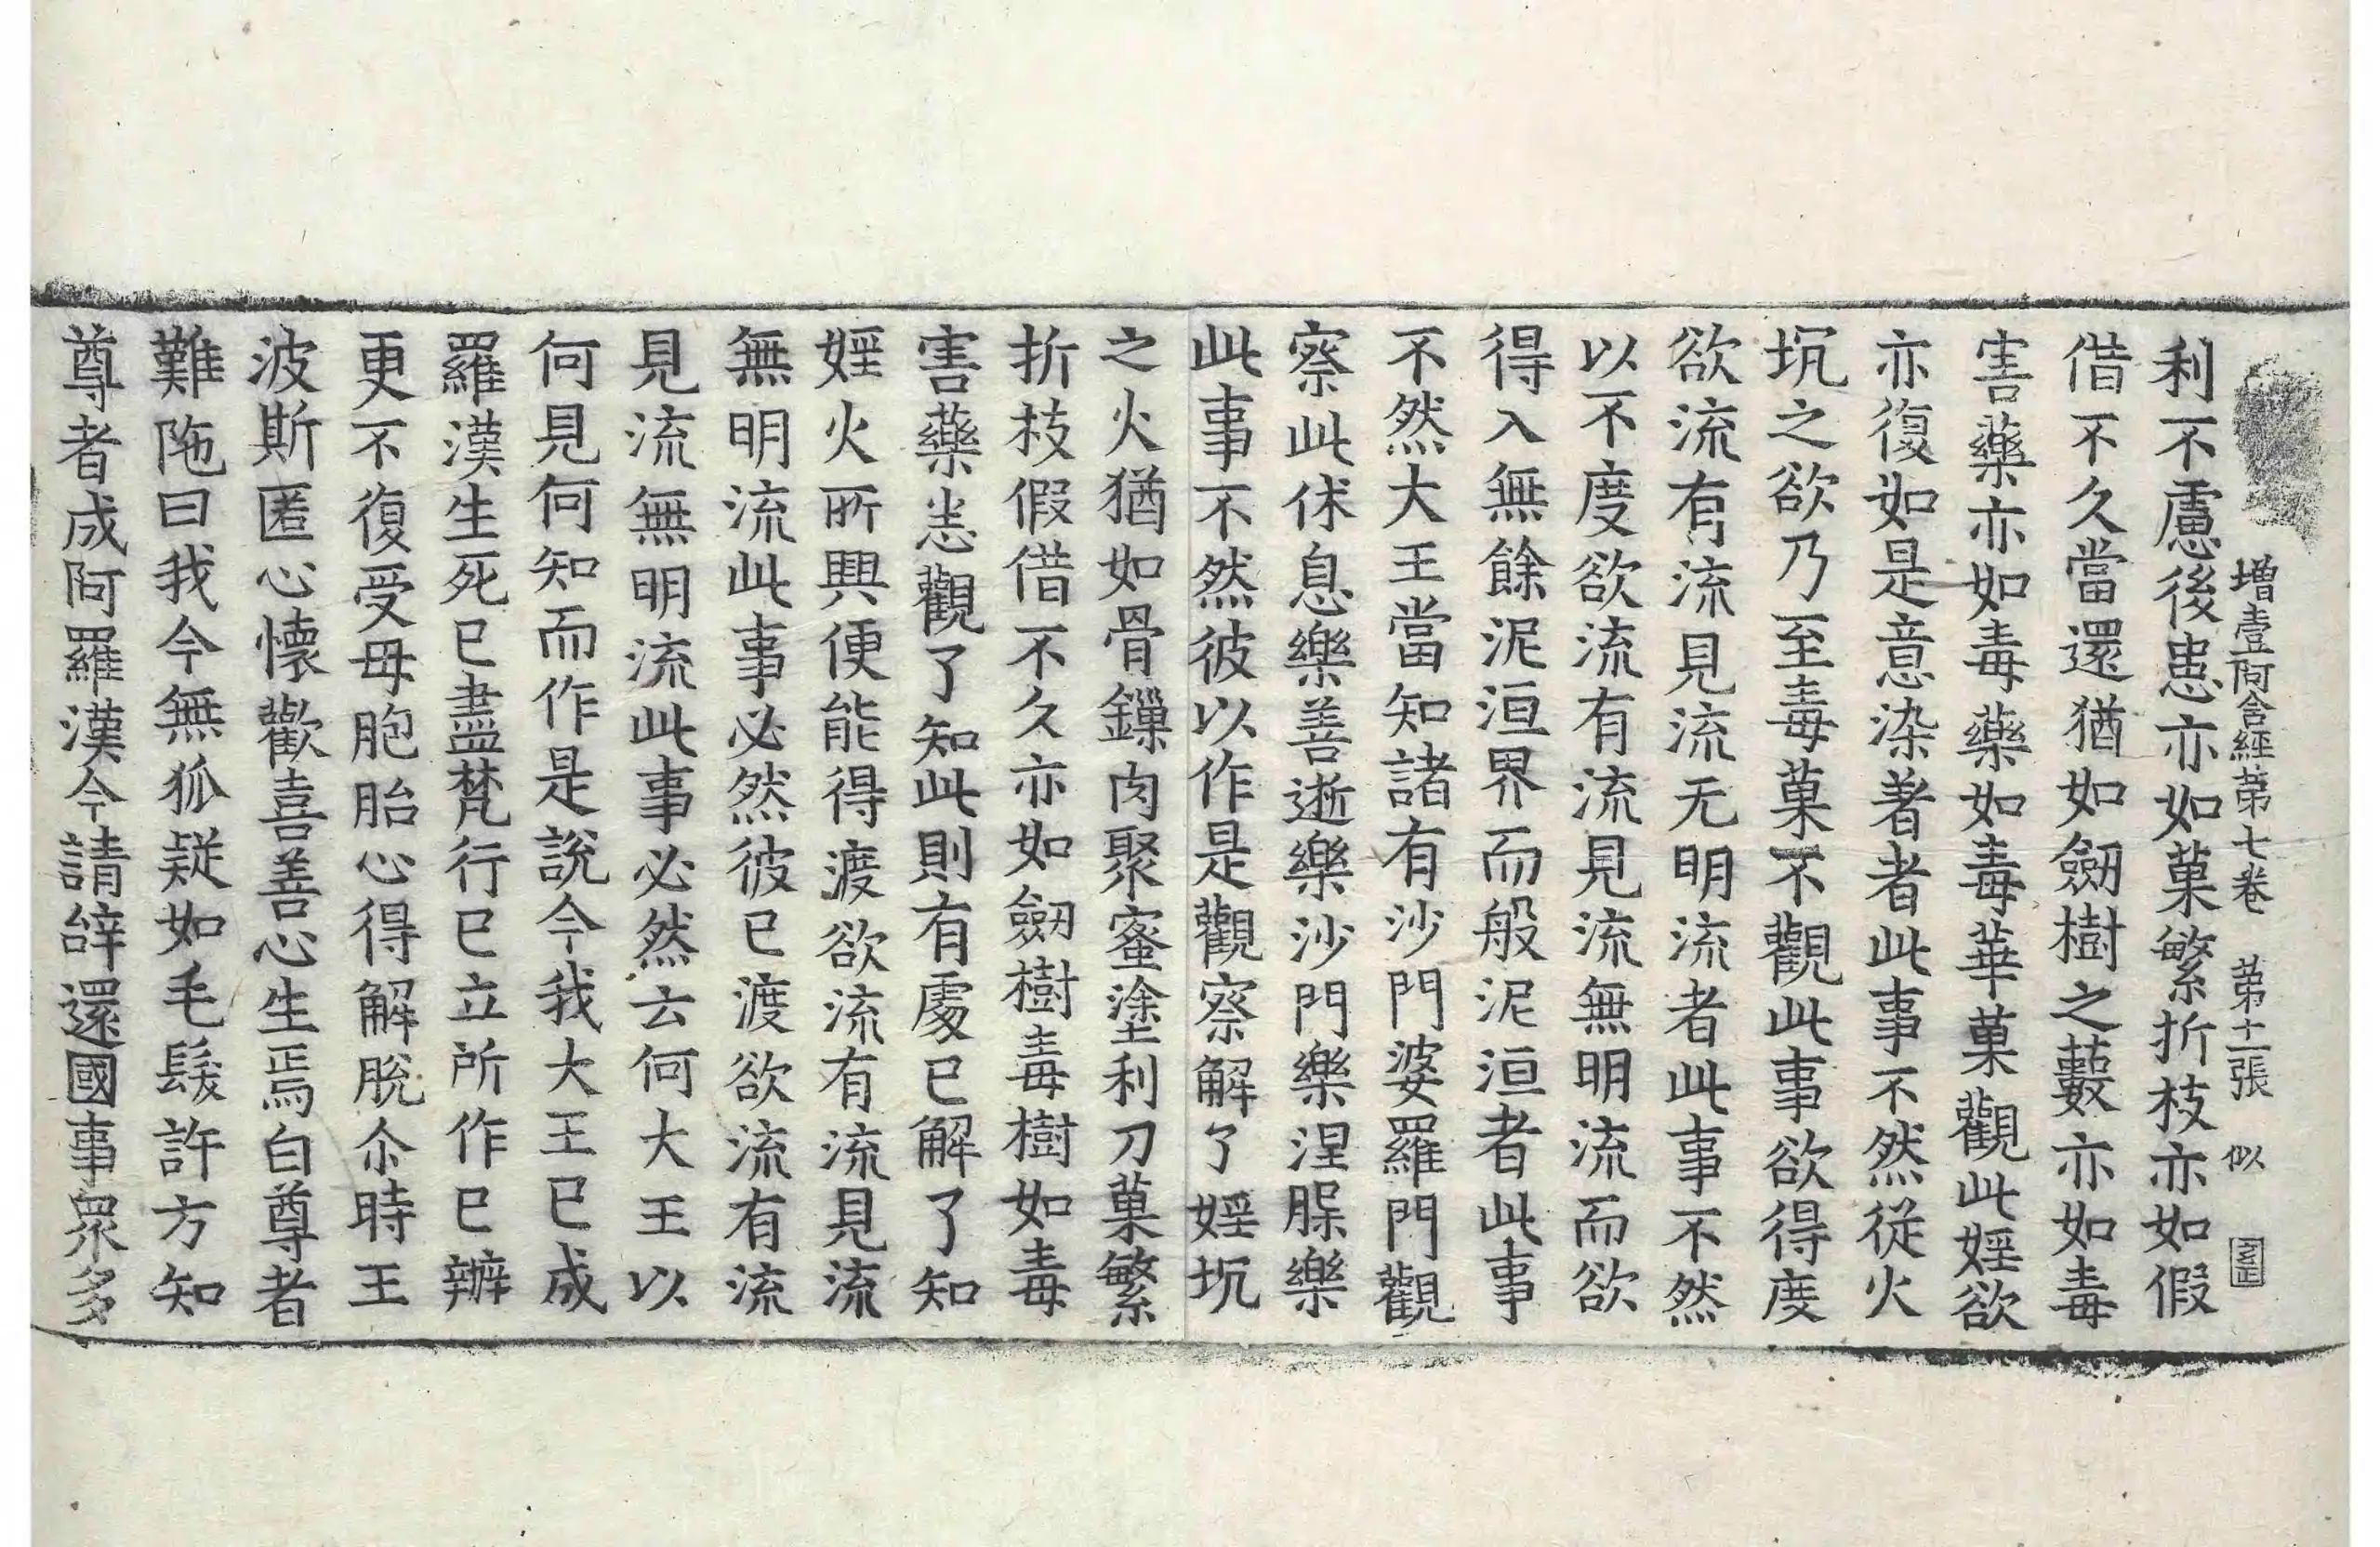 增壹阿含經第七卷　第十二張　似
利不慮後患亦如菓繁折枝亦如假
借不久當還猶如劒樹之藪亦如毒
害藥亦如毒藥如毒華菓觀此婬欲
亦復如是意染著者此事不然從火
坑之欲乃至毒菓不觀此事欲得度
欲流有流見流无明流者此事不然
以不度欲流有流見流無明流而欲
得入無餘泥洹界而般泥洹者此事
不然大王當知諸有沙門婆羅門觀
察此休息樂善逝樂沙門樂涅槃樂
此事不然彼以作是觀察解了婬坑
之火猶如骨鏁肉聚蜜塗利刀菓繁
折枝假借不久亦如劒樹毒樹如毒
害藥悉觀了知此則有處已解了知
婬火所興便能得渡欲流有流見流
無明流此事必然彼已渡欲流有流
見流無明流此事必然云何大王以
何見何知而作是說今我大王已成
羅漢生死已盡梵行已立所作已辦
更不復受母胞胎心得解脫尒時王
波斯匿心懷歡喜善心生焉白尊者
難陁曰我今無狐疑如毛髮許方知
尊者成阿羅漢今請辝還國事衆多